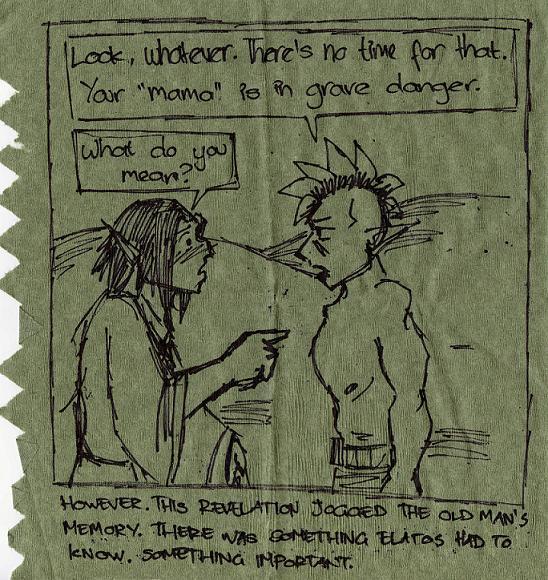 Look, whatever. There's no time for that.
Your "mama" is in grave danger.
What do you
mean?
HOWEVER. THIS REVELATION JOGGED THE OLD MAN'S
MEMORY. THERE WAS SOMETHING ELATOS HAD TO
KNOW. SOMETHING IMPORTANT.